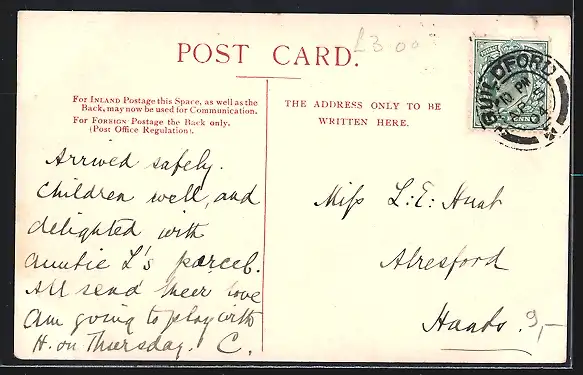 POST CARD.
£3 00
For INLAND Postage this Space, as well as the
Back, may now be used for Communication.
For FOREIGN Postage the Back only.
(Post Office Regulation).
THE ADDRESS ONLY TO BE
WRITTEN HERE.
GUILDFORD
10 PM
Arrived safely.
Children well, and
delighted with
Auntie L's parcel.
All send love
Am going to play with
H. on Thursday. C.
Miss L. E. Hunt
Alresford
Hants. 9,-